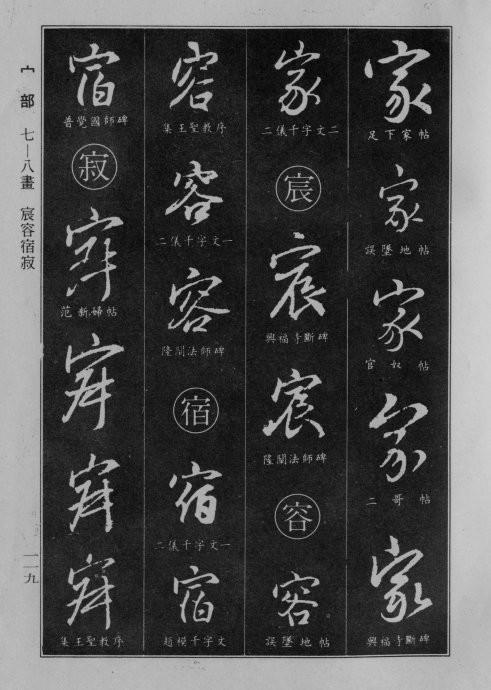 家
足下家帖
家
誤墜地帖
家
官奴帖
家
二哥帖
家
興福寺斷碑
家
二儀千字文二
宸
宸
興福寺斷碑
宸
隆闡法師碑
容
容
誤墜地帖
容
集王聖教序
容
二儀千字文一
容
隆闡法師碑
宿
宿
二儀千字文一
宿
趙模千字文
宿
普覺國師碑
寂
寂
范新婦帖
寂
寂
寂
集王聖教序
宀部 七—八畫 宸容宿寂
一一九